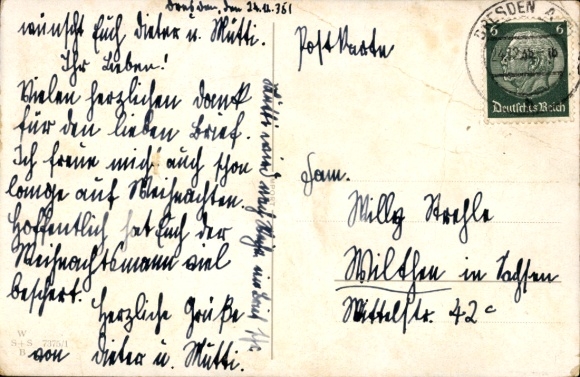 Dresden, den 24.11.36!
wünscht Euch Dieter u. Mutti.
Ihr Lieben!
Vielen herzlichen Dank
für den lieben Brief.
Ich freue mich auch schon
lange auf Weihnachten.
Hoffentlich hat Euch der
Weihnachtsmann viel
beschert.
Herzliche Grüße
von Dieter u. Mutti.
W
S+S 7375/1
B
Postkarte
DRESDEN A
6 6
Deutsches Reich
Fam.
Willy Strehle
Wilthen in Sachsen
Mittelstr. 42c